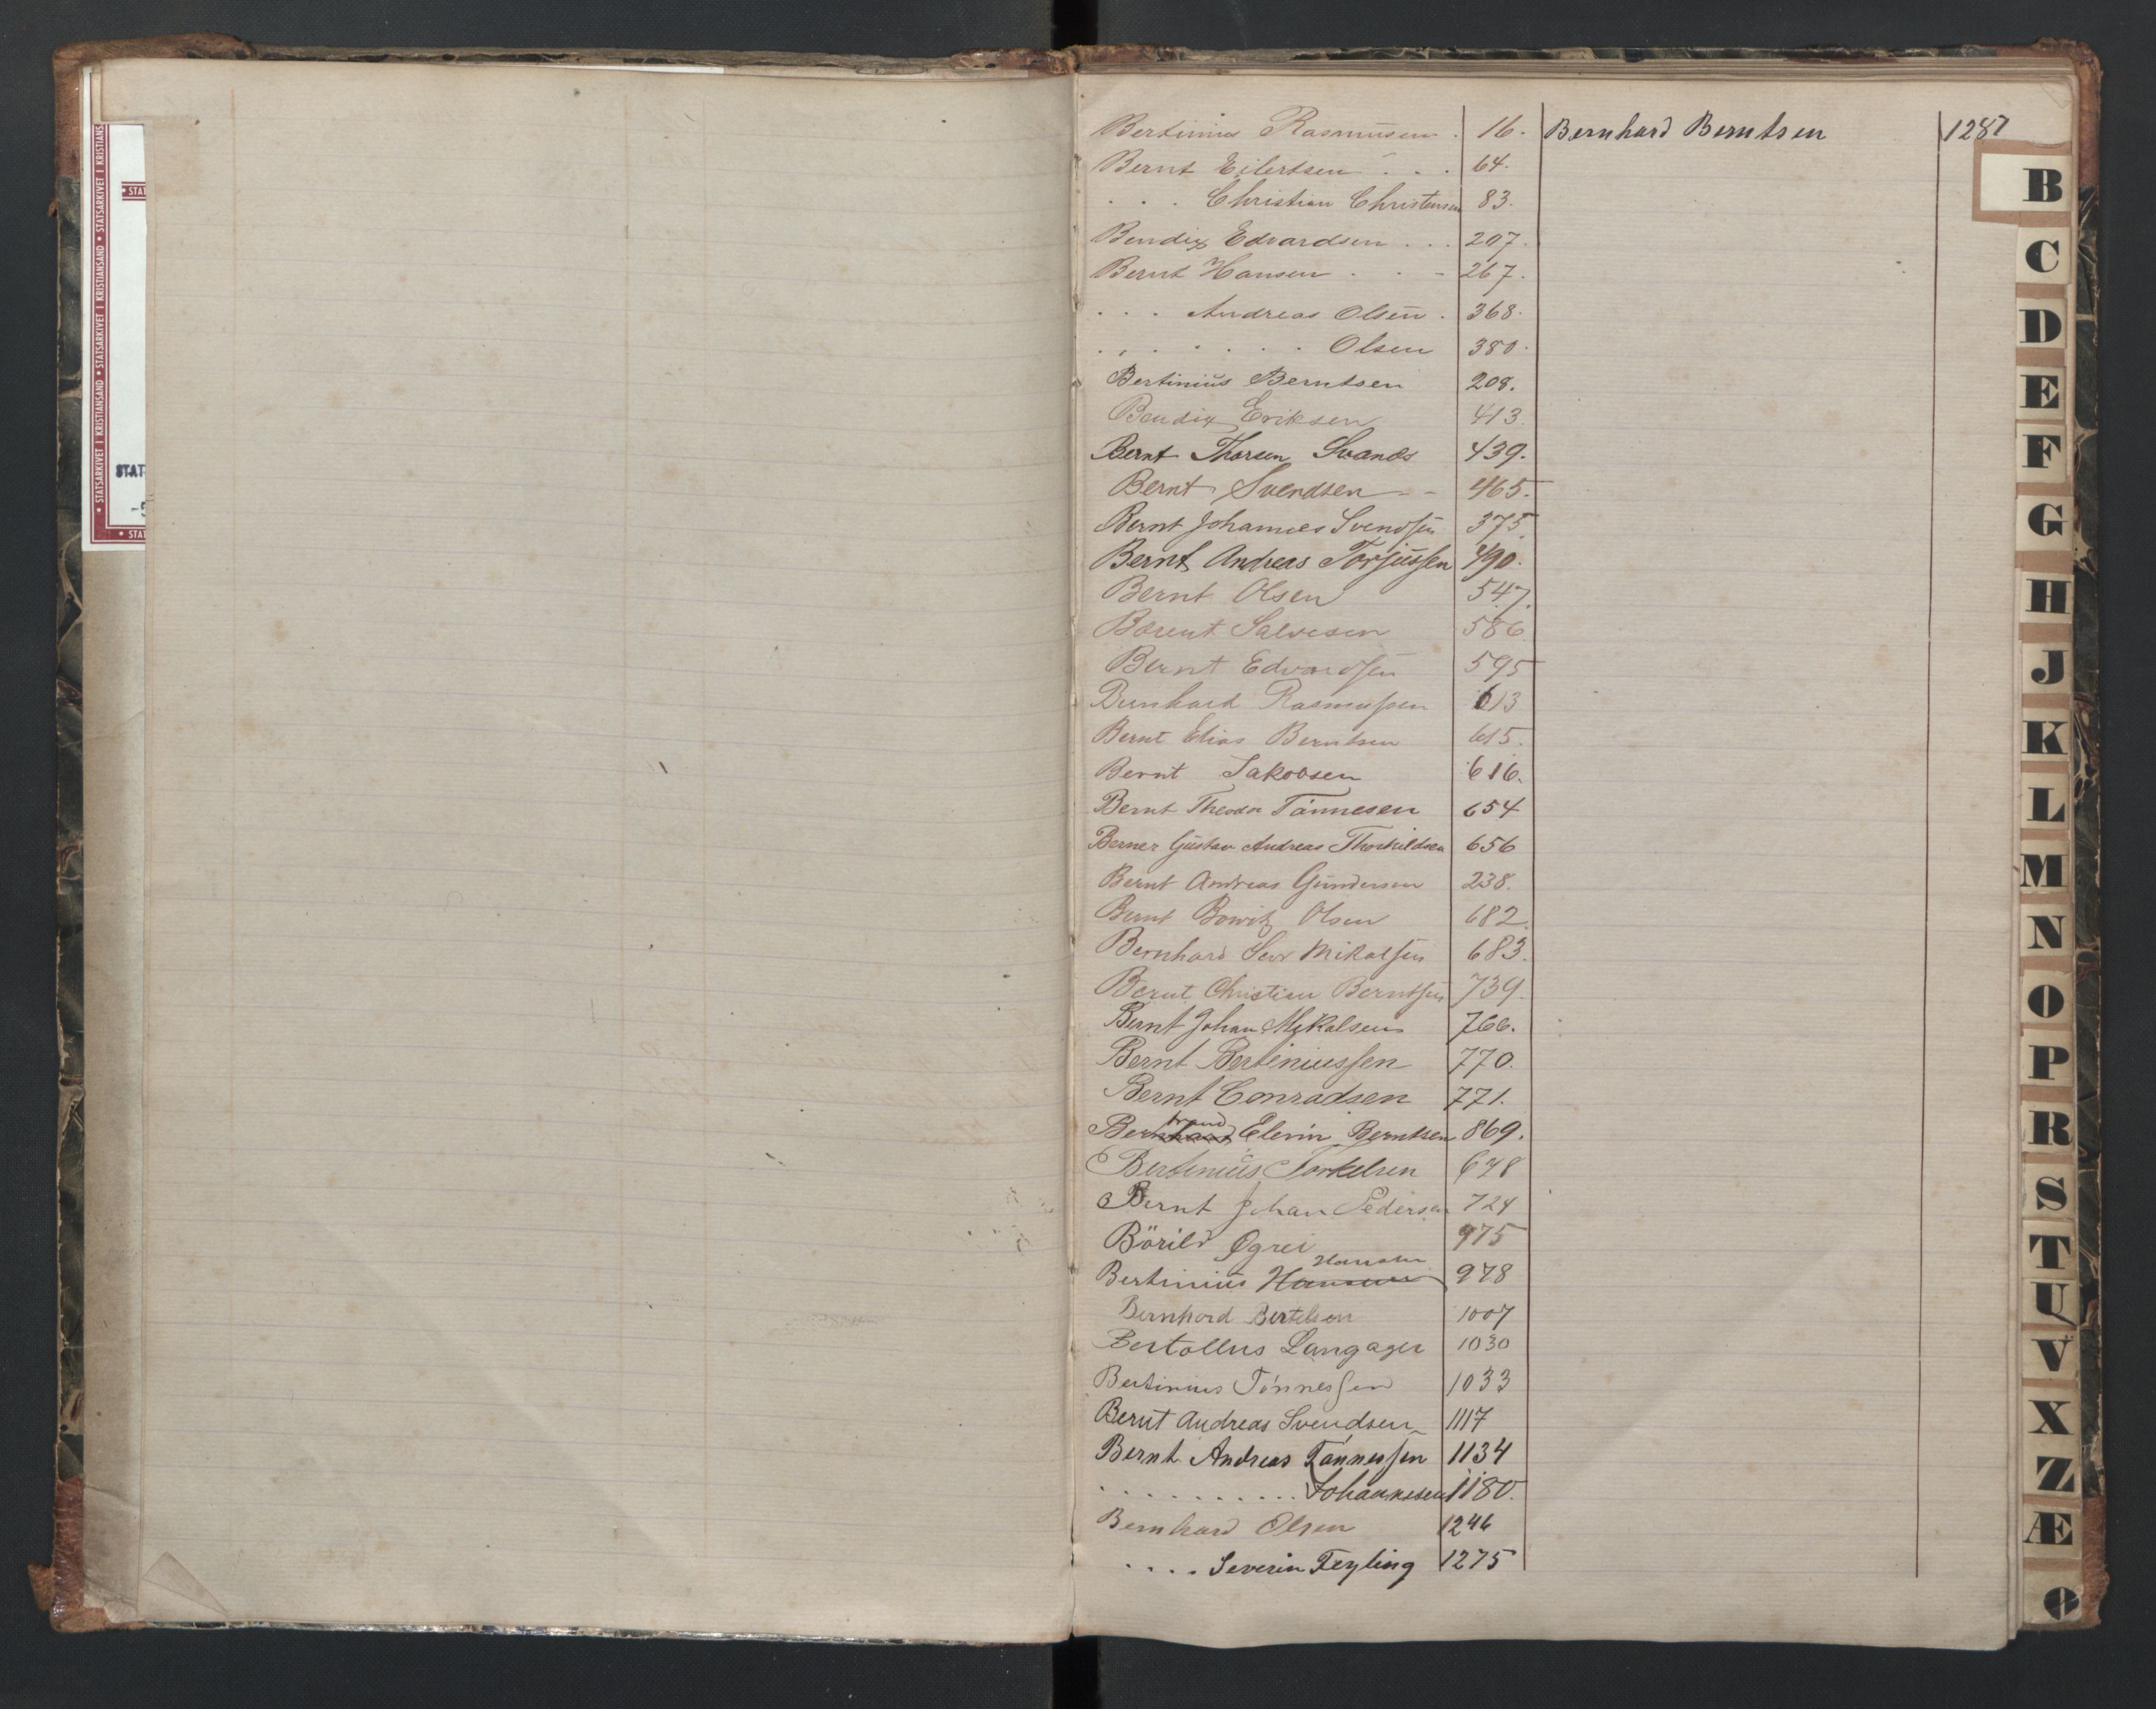 Bertinius Rasmussen . 16.
Bernt Eilertsen . . . 64.
. . . Christian Christensen 83.
Bendix Edvardsen . . . 207.
Bernt Hansen . . - 267.
. . . Andreas Olsen . 368.
. . . . . . . Olsen 380.
Bertinius Berntsen 208.
Bendix Eriksen 413.
Bernt Thorsen Svanes 439.
Bernt Svendsen - - 465.
Bernt Johannes Svendsen 375.
Bernt Andreas Torjussen 490.
Bernt Olsen 547.
Bernt Salvesen 586.
Bernt Edvardsen 595
Bernhard Rasmussen 613
Bernt Elias Berntsen 615.
Bernt Jakobsen 616.
Bernt Theodor Tönnesen 654
Berner Gustav Andreas Thorkildsen 656
Bernt Andreas Gundersen 238.
Bernt Bowitz Olsen 682.
Bernhard Sev Mikalsen 683.
Bernt Christian Berntsen 739.
Bernt Johan Mikalsen 766.
Bernt Berteniussen 770.
Bernt Conradsen 771.
Bernhard Elevin Berntsen 869.
Bertinius Torkelsen 678
Bernt Johan Pedersen 724
Börild Øgrei 975
Hansen
Bertinius Hansen 978
Bernhard Bertelsen 1007
Bertollus Langager 1030
Bertinius Tönnessen 1033
Bernt Andreas Svendsen 1117
Bernt Andreas Tönnessen 1134
. . . . . . . . . . Johannesen 1180.
Bernhard Olsen 1246
. . . . Severin Feyling 1275
Bernhard Berntsen 1287
B
C
D
E
F
G
H
J
K
L
M
N
O
P
R
S
T
U
V
X
Z
Æ
Ø
STATSARKIVET I KRISTIANSAND • STATSARKIVET I KRISTIANSAND • STATSARKIVET I KRISTIANS
• STAT
STAT
• STAT